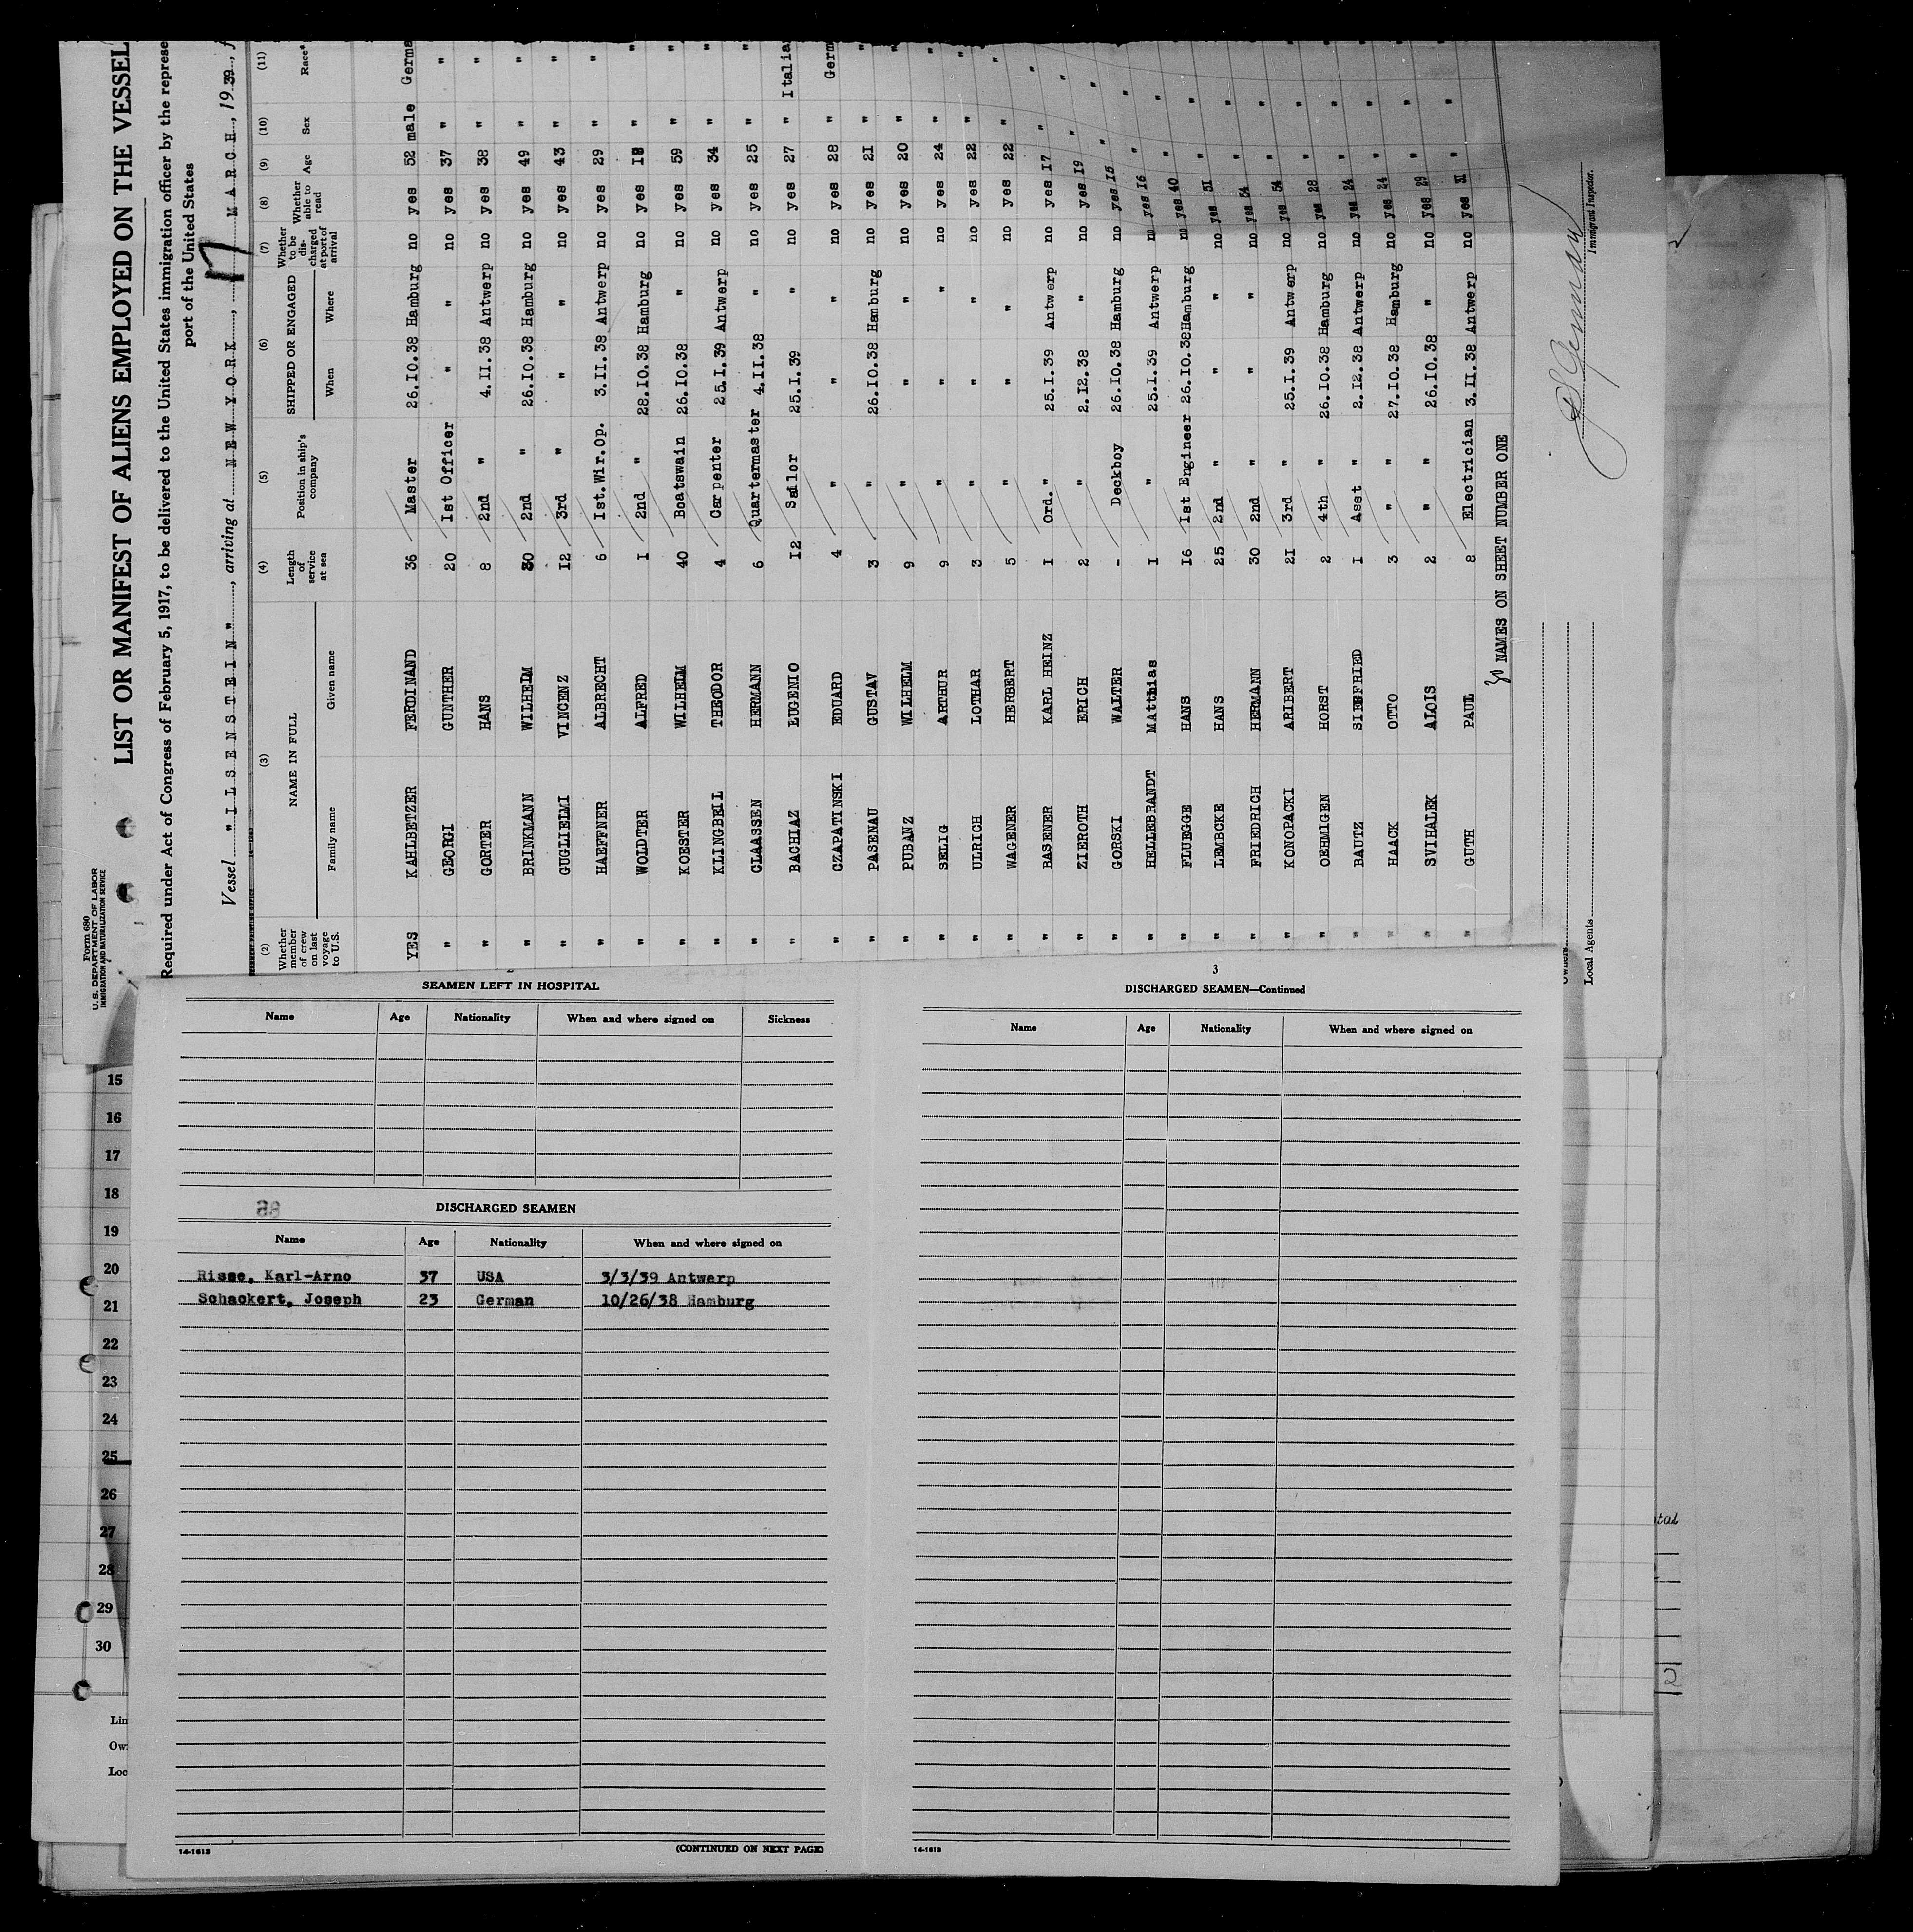 Form 680
U.S. DEPARTMENT OF LABOR
IMMIGRATION AND NATURALIZATION SERVICE
LIST OR MANIFEST OF ALIENS EMPLOYED ON THE VESSEL
Required under Act of Congress of February 5, 1917, to be delivered to the United States immigration officer by the represe
port of the United States
Vessel "ILSENSTEIN", arriving at NEW YORK, 17 MARCH, 1939,
(2) (3) (4) (5) (6) (7) (8) (9) (10) (11)
Whether member of crew on last voyage to U.S. NAME IN FULL Family name Given name Length of service at sea Position in ship's company SHIPPED OR ENGAGED When Where Whether to be discharged at port of arrival Whether able to read Age Sex Race*
YES KAHLBETZER FERDINAND 36 Master 26.10.38 Hamburg no yes 52 male Germa
" GEORGI GUNTHER 20 1st Officer " " no yes 37 " "
" GORTER HANS 8 2nd " 4.11.38 Antwerp no yes 38 " "
" BRINKMANN WILHELM 30 2nd " 26.10.38 Hamburg no yes 49 " "
" GUGLIELMI VINCENZ 12 3rd " " " no yes 43 " "
" HAEFFNER ALBRECHT 6 1st.Wir.Op. 3.11.38 Antwerp no yes 29 " "
" WOLDTER ALFRED 1 2nd " 28.10.38 Hamburg no yes 18 " "
" KOESTER WILHELM 40 Boatswain 26.10.38 " no yes 59 " "
" KLINGBEIL THEODOR 4 Carpenter 25.1.39 Antwerp no yes 34 " "
" CLAASSEN HERMANN 6 Quartermaster 4.11.38 " no yes 25 " "
" BACHIAZ EUGENIO 12 Sailor 25.1.39 " no yes 27 " Italia
" CZAPATINSKI EDUARD 4 " " " no yes 28 " Germ
" PASENAU GUSTAV 3 " 26.10.38 Hamburg no yes 21 " "
" PUBANZ WILHELM 9 " " " no yes 20 " "
" SELIG ARTHUR 9 " " " no yes 24 " "
" ULRICH LOTHAR 3 " " " no yes 22 " "
" WAGENER HERBERT 5 " " " no yes 22 " "
" BASENER KARL HEINZ 1 Ord." 25.1.39 Antwerp no yes 17 " "
" ZIEROTH ERICH 2 " 2.12.38 " no yes 19 " "
" GORSKI WALTER - Deckboy 26.10.38 Hamburg no yes 15 " "
" HELLEBRANDT Matthias 1 " 25.1.39 Antwerp no yes 16 " "
" FLUEGGE HANS 16 1st Engineer 26.10.38 Hamburg no yes 40 " "
" LEMBCKE HANS 25 2nd " " " no yes 51 " "
" FRIEDRICH HERMANN 30 2nd " " " no yes 54 " "
" KONOPACKI ARIBERT 21 3rd " 25.1.39 Antwerp no yes 54 " "
" OEHMIGEN HORST 2 4th " 26.10.38 Hamburg no yes 28 " "
" BAUTZ SIEGFRIED 1 Asst " 2.12.38 Antwerp no yes 24 " "
" HAACK OTTO 3 " " 27.10.38 Hamburg no yes 24 " "
" SVIHALEK ALOIS 2 " " 26.10.38 " no yes 29 " "
" GUTH PAUL 8 Electrician 3.11.38 Antwerp no yes 31 " "
30 NAMES ON SHEET NUMBER ONE
Local Agents
Immigrant Inspector.
SEAMEN LEFT IN HOSPITAL
Name Age Nationality When and where signed on Sickness
DISCHARGED SEAMEN
Name Age Nationality When and where signed on
Risse, Karl-Arno 37 USA 3/3/39 Antwerp
Schackert, Joseph 23 German 10/26/38 Hamburg
14-1613
(CONTINUED ON NEXT PAGE)
3
DISCHARGED SEAMEN—Continued
Name Age Nationality When and where signed on
14-1613
15
16
17
18
19
20
21
22
23
24
25
26
27
28
29
30
Lin
Ow
Loc
tal
2